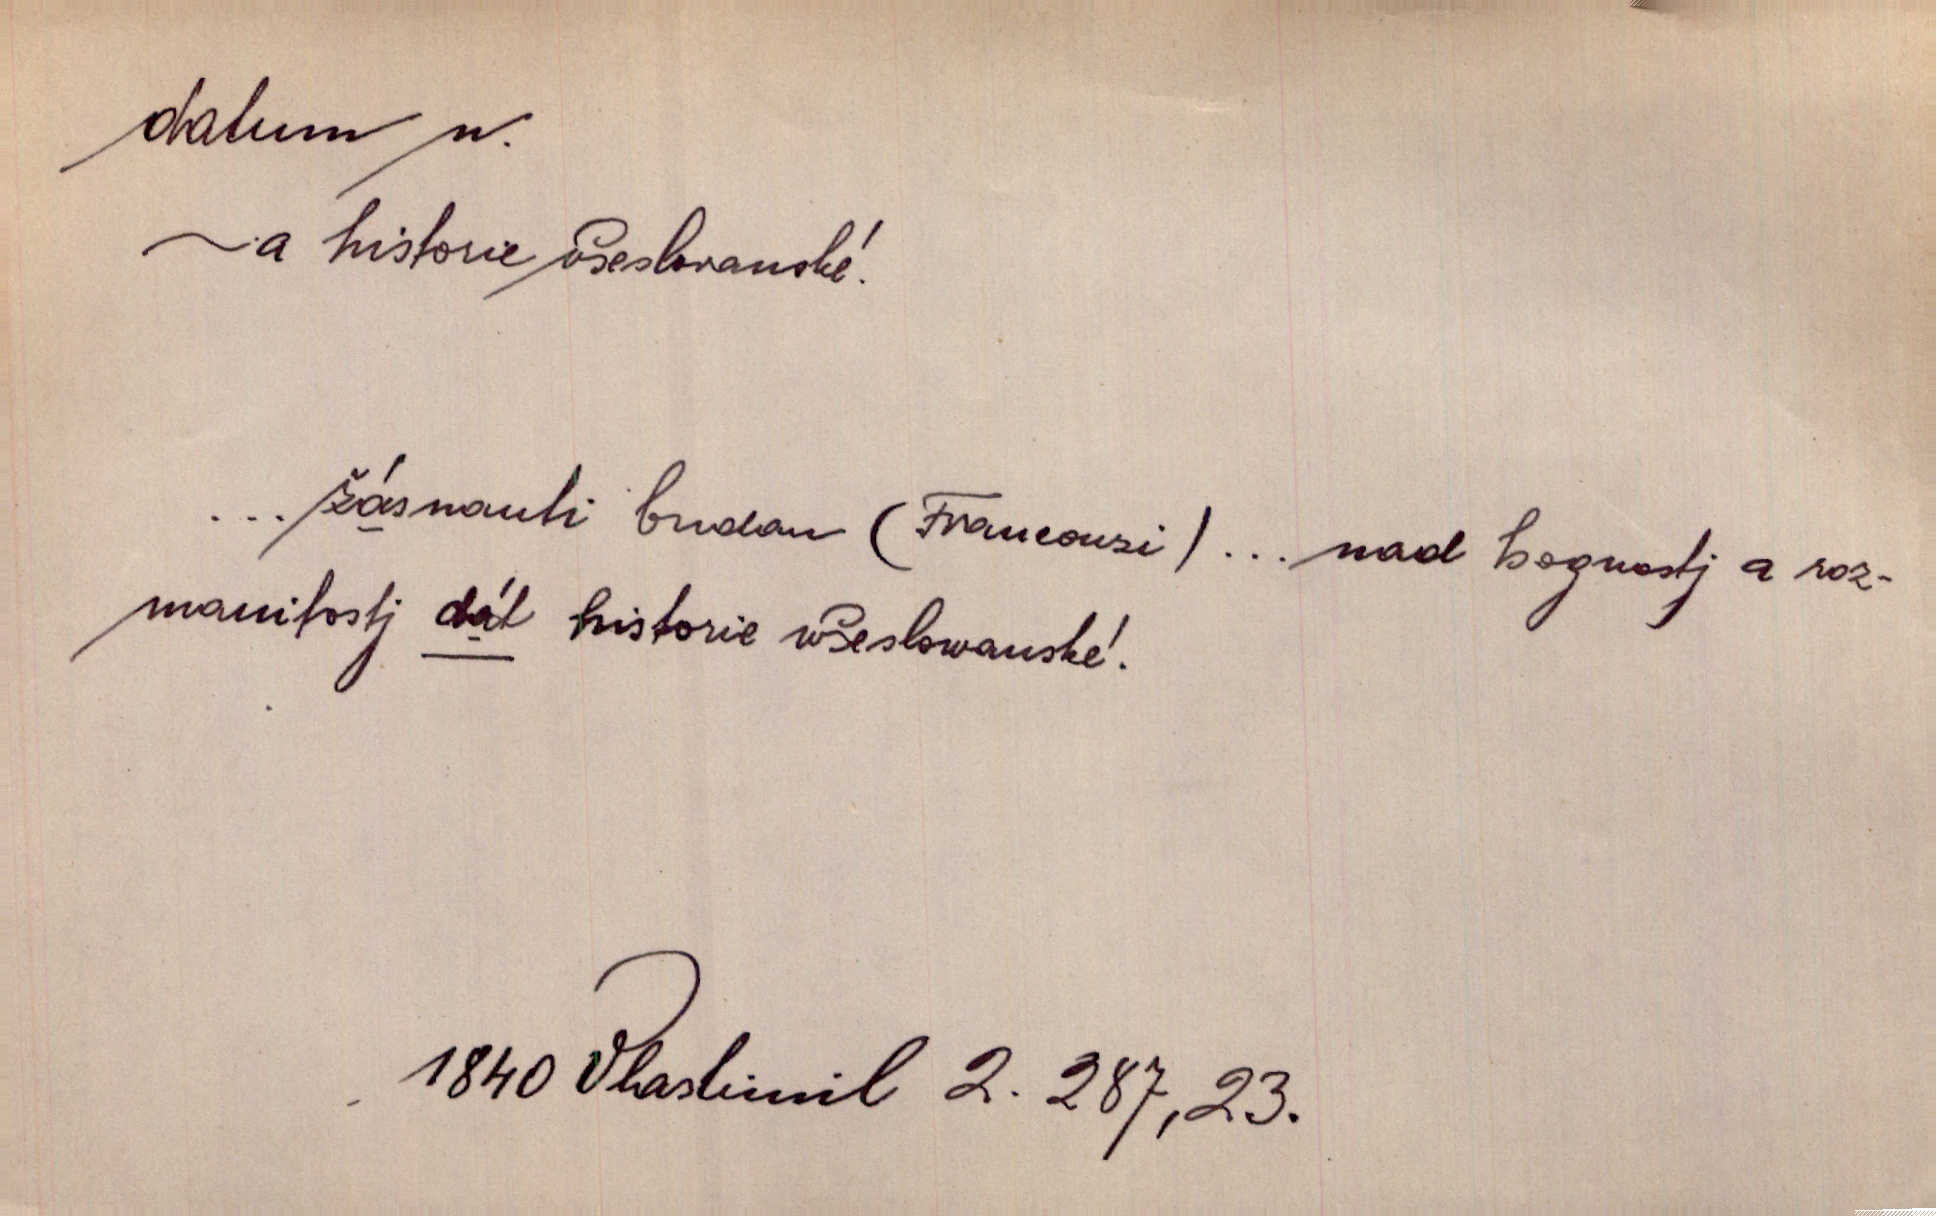 datum n.
~a historie všeslovanské.
... žásnauti budau (Francouzi) ... nad hognostj a roz-
manitostj dát historie wšeslowanské.
1840 Vlastimil 2. 287, 23.